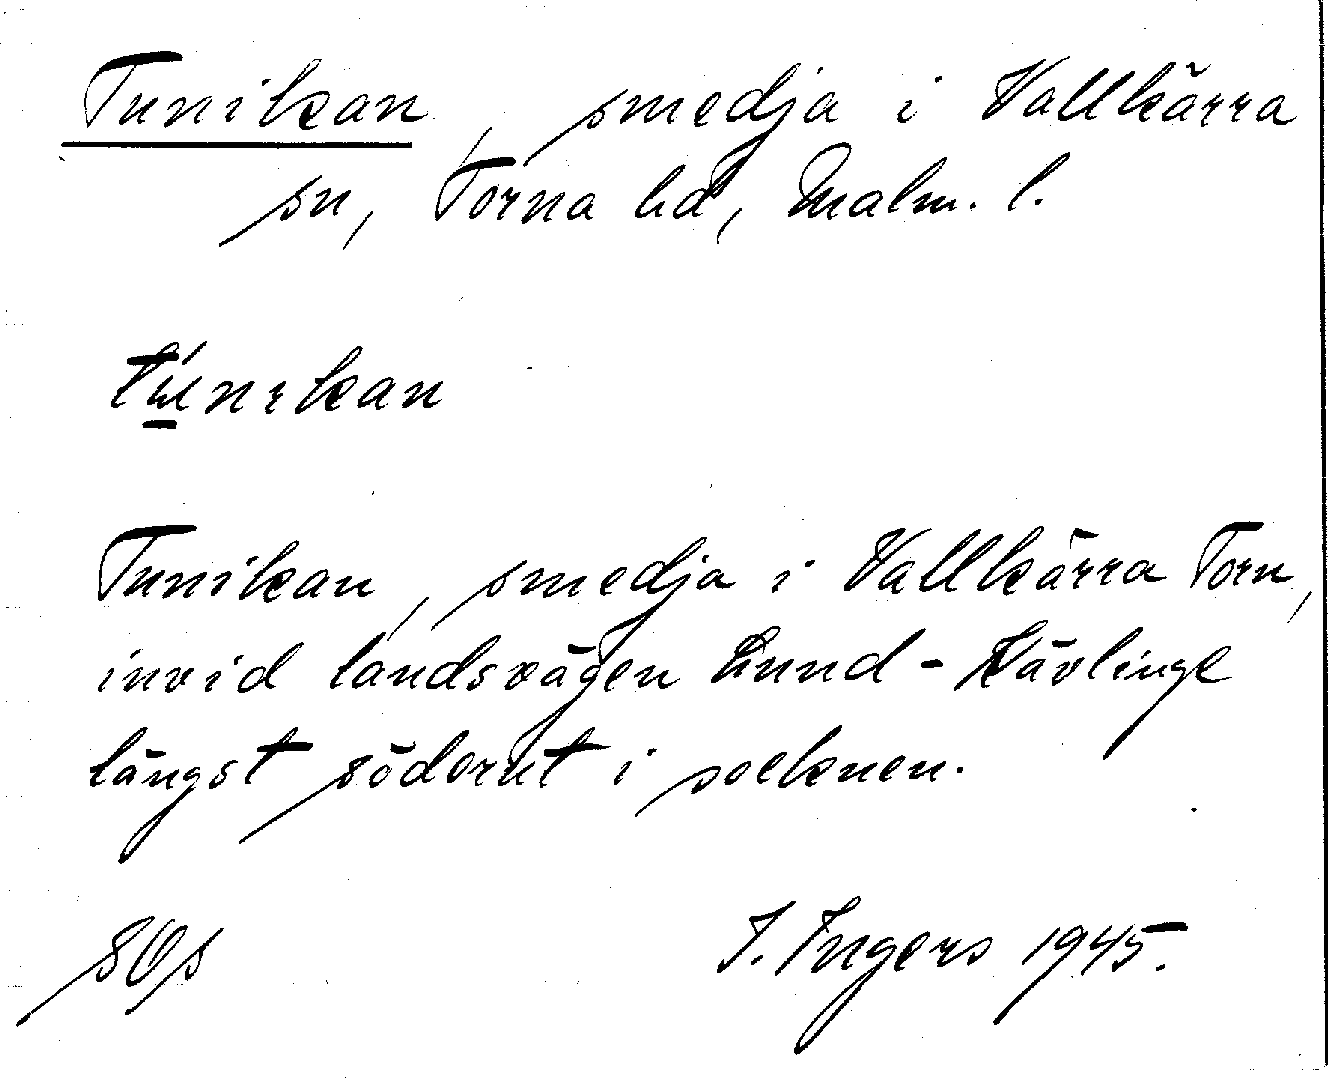 Tunikan, smedja i Vallkärra
sn, Torna hd, Malm. l.
tú̱nıkan
Tunikan, smedja i Vallkärra Torn,
invid landsvägen Lund - Kävlinge
längst söderut i socknen.
SOs I. Ingers 1945.